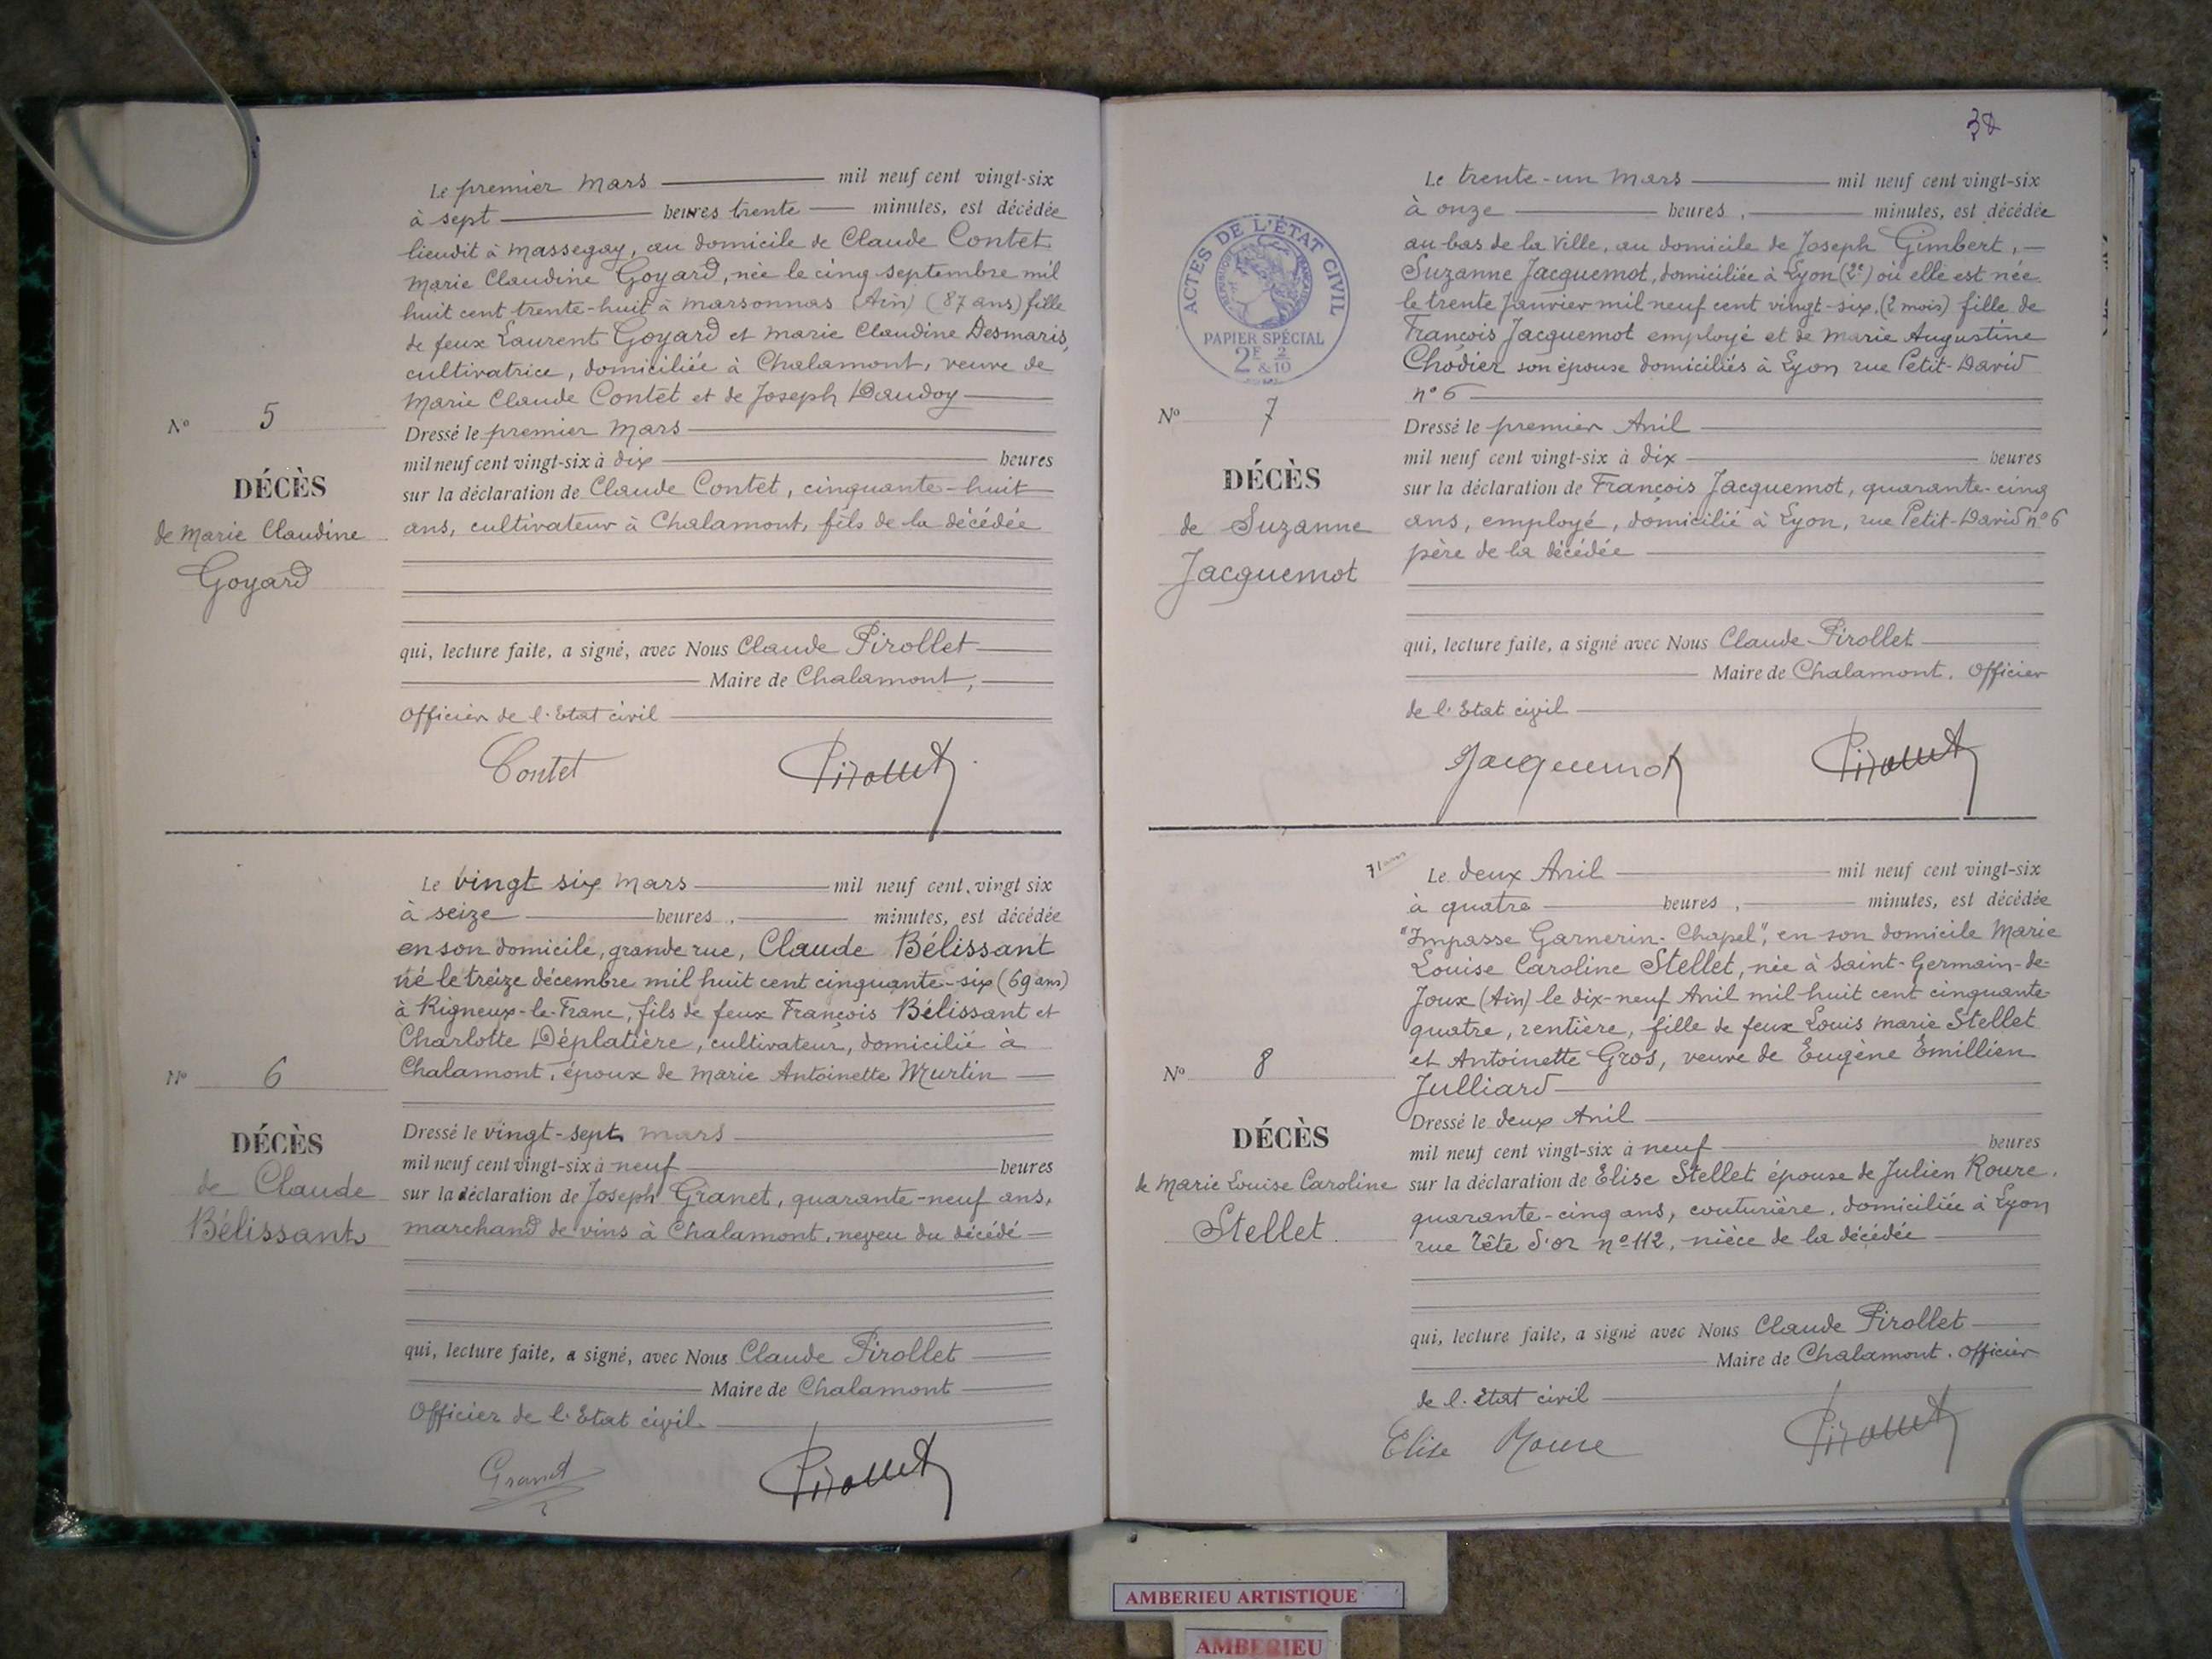 Le premier Mars mil neuf cent vingt-six
à sept heures trente minutes, est décédée
lieudit à Massegay, au domicile de Claude Contet
Marie Claudine Goyard, née le cinq septembre mil
huit cent trente-huit à Marsonnas (Ain) (87 ans) fille
de feux Laurent Goyard et Marie Claudine Desmaris,
cultivatrice, domiciliée à Chalamont, veuve de
Marie Claude Contet et de Joseph Daudoy
Nº 5
Dressé le premier Mars
mil neuf cent vingt-six à dix heures
DÉCÈS
sur la déclaration de Claude Contet, cinquante-huit
de Marie Claudine
ans, cultivateur à Chalamont, fils de la décédée
Goyard
qui, lecture faite, a signé, avec Nous Claude Pirollet
Maire de Chalamont,
Officier de l'Etat civil
Contet Pirollet
Le vingt six Mars mil neuf cent vingt six
à seize heures, minutes, est décédée
en son domicile, grande rue, Claude Bélissant
né le treize décembre mil huit cent cinquante-six (69 ans)
à Rigneux-le-Franc, fils de feux François Bélissant et
Charlotte Déplatière, cultivateur, domicilié à
Nº 6
Chalamont, époux de Marie Antoinette Murtin
DÉCÈS
Dressé le vingt-sept mars
mil neuf cent vingt-six à neuf heures
de Claude
sur la déclaration de Joseph Granet, quarante-neuf ans,
Bélissant
marchand de vins à Chalamont, neveu du décédé
qui, lecture faite, a signé, avec Nous Claude Pirollet
Maire de Chalamont
Officier de l'Etat civil
Granet Pirollet
38
Le trente-un Mars mil neuf cent vingt-six
à onze heures, minutes, est décédée
au bas de la Ville, au domicile de Joseph Gimbert,
Suzanne Jacquemot, domiciliée à Lyon (2e) où elle est née
le trente Janvier mil neuf cent vingt-six, (2 mois) fille de
François Jacquemot employé et de Marie Augustine
Chodier son épouse domiciliés à Lyon rue Petit-David
nº 6
ACTES DE L'ÉTAT CIVIL
PAPIER SPÉCIAL
2E & 2/10
Nº 7
Dressé le premier Avril
mil neuf cent vingt-six à dix heures
DÉCÈS
sur la déclaration de François Jacquemot, quarante-cinq
de Suzanne
ans, employé, domicilié à Lyon, rue Petit-David nº 6
Jacquemot
père de la décédée
qui, lecture faite, a signé avec Nous Claude Pirollet
Maire de Chalamont, Officier
de l'Etat civil
Jacquemot Pirollet
71 ans
Le deux Avril mil neuf cent vingt-six
à quatre heures, minutes, est décédée
"Impasse Garnerin-Chapel", en son domicile Marie
Louise Caroline Stellet, née à Saint-Germain-de-
Joux (Ain) le dix-neuf Avril mil huit cent cinquante-
quatre, rentière, fille de feux Louis Marie Stellet
et Antoinette Gros, veuve de Eugène Emillien
Nº 8
Julliard
Dressé le deux Avril
DÉCÈS
mil neuf cent vingt-six à neuf heures
de Marie Louise Caroline
sur la déclaration de Elise Stellet épouse de Julien Roure,
Stellet
quarante-cinq ans, couturière, domiciliée à Lyon
rue Tête d'or nº 112, nièce de la décédée
qui, lecture faite, a signé avec Nous Claude Pirollet
Maire de Chalamont, Officier
de l'état civil
Elise Roure Pirollet
AMBERIEU ARTISTIQUE
AMBERIEU